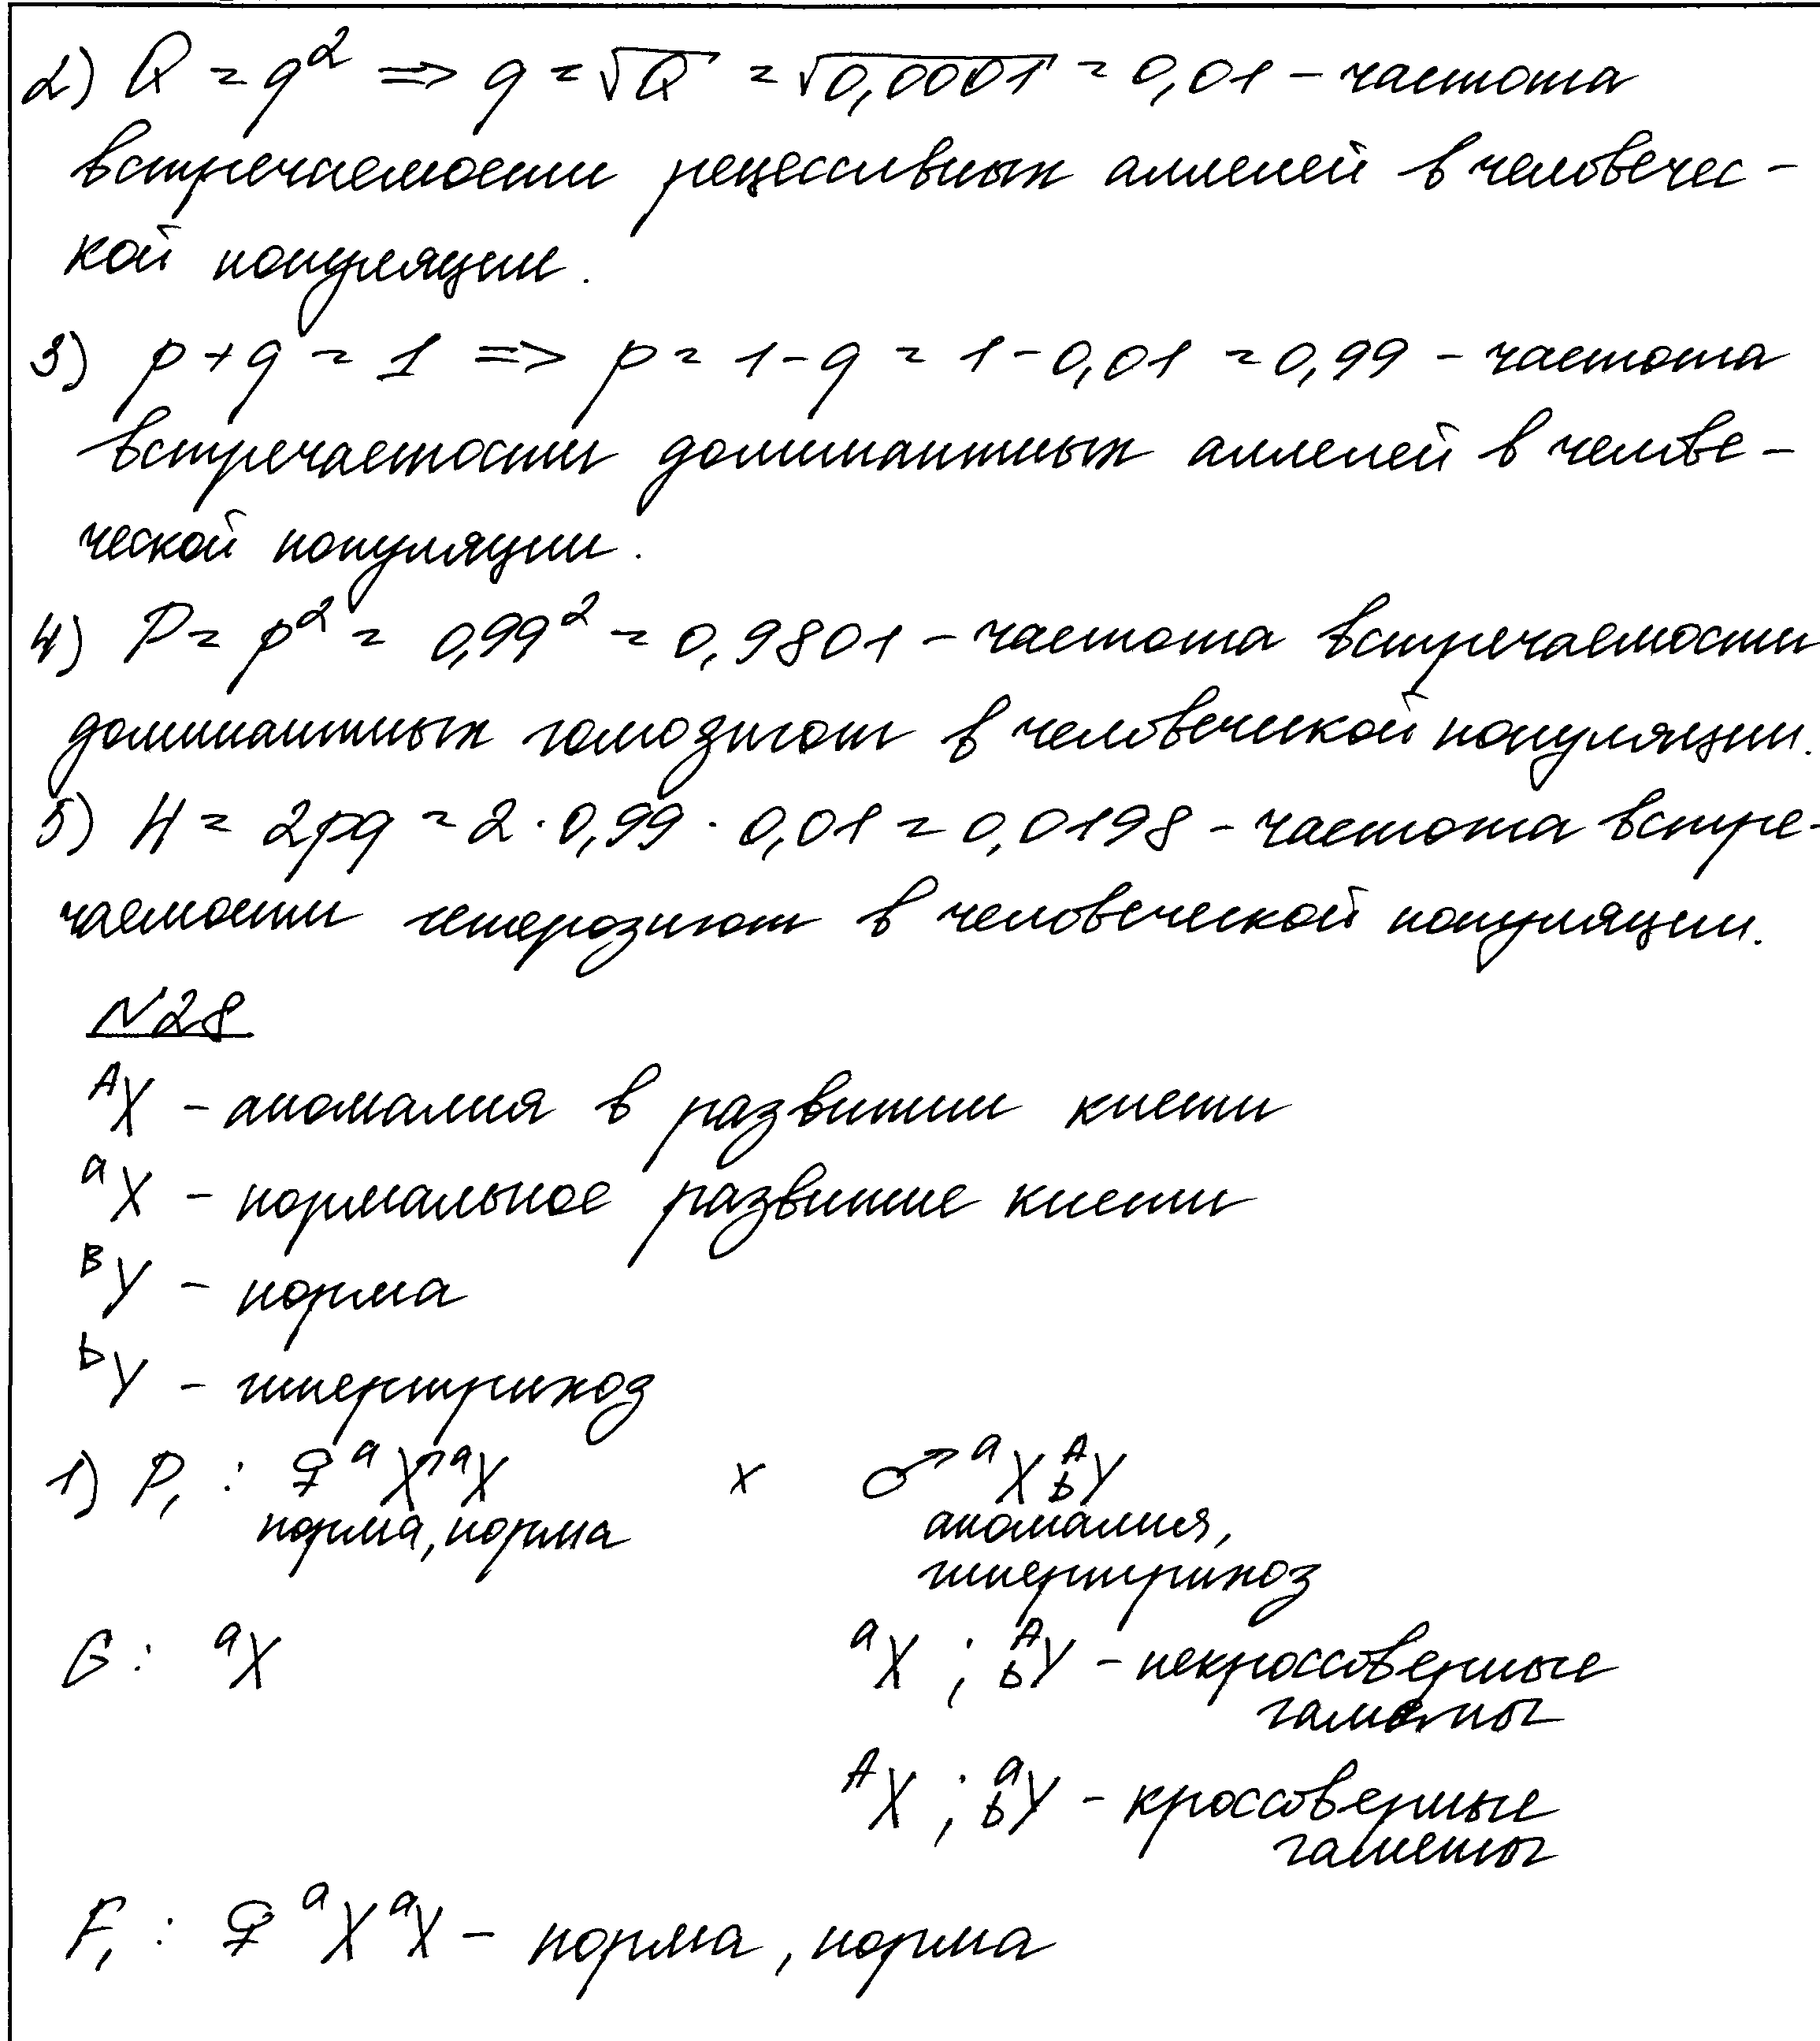 2) Q = q² => q = √Q = √0,0001 = 0,01 – частота
встречаемости рецессивных аллелей в человечес-
кой популяции.
3) p + q = 1 => p = 1 - q = 1 - 0,01 = 0,99 – частота
встречаемости доминантных аллелей в челове-
ческой популяции.
4) P = p² = 0,99² = 0,9801 – частота встречаемости
доминантных гомозигот в человеческой популяции.
5) H = 2pq = 2 · 0,99 · 0,01 = 0,0198 – частота встре-
чаемости гетерозигот в человеческой популяции.
N28
ᴬX – аномалия в развитии кисти
ᵃX – нормальное развитие кисти
ᴮY – норма
ᵇY – гипертрихоз
1) P₁ : ♀ ᵃXᵃX x ♂ ᵃX ᴬᵇY
норма, норма аномалия,
гипертрихоз
G : ᵃX ᵃX ; ᴬᵇY – некроссоверные
гаметы
ᴬX ; ᵃᵇY – кроссоверные
гаметы
F₁ : ♀ ᵃXᵃX – норма, норма